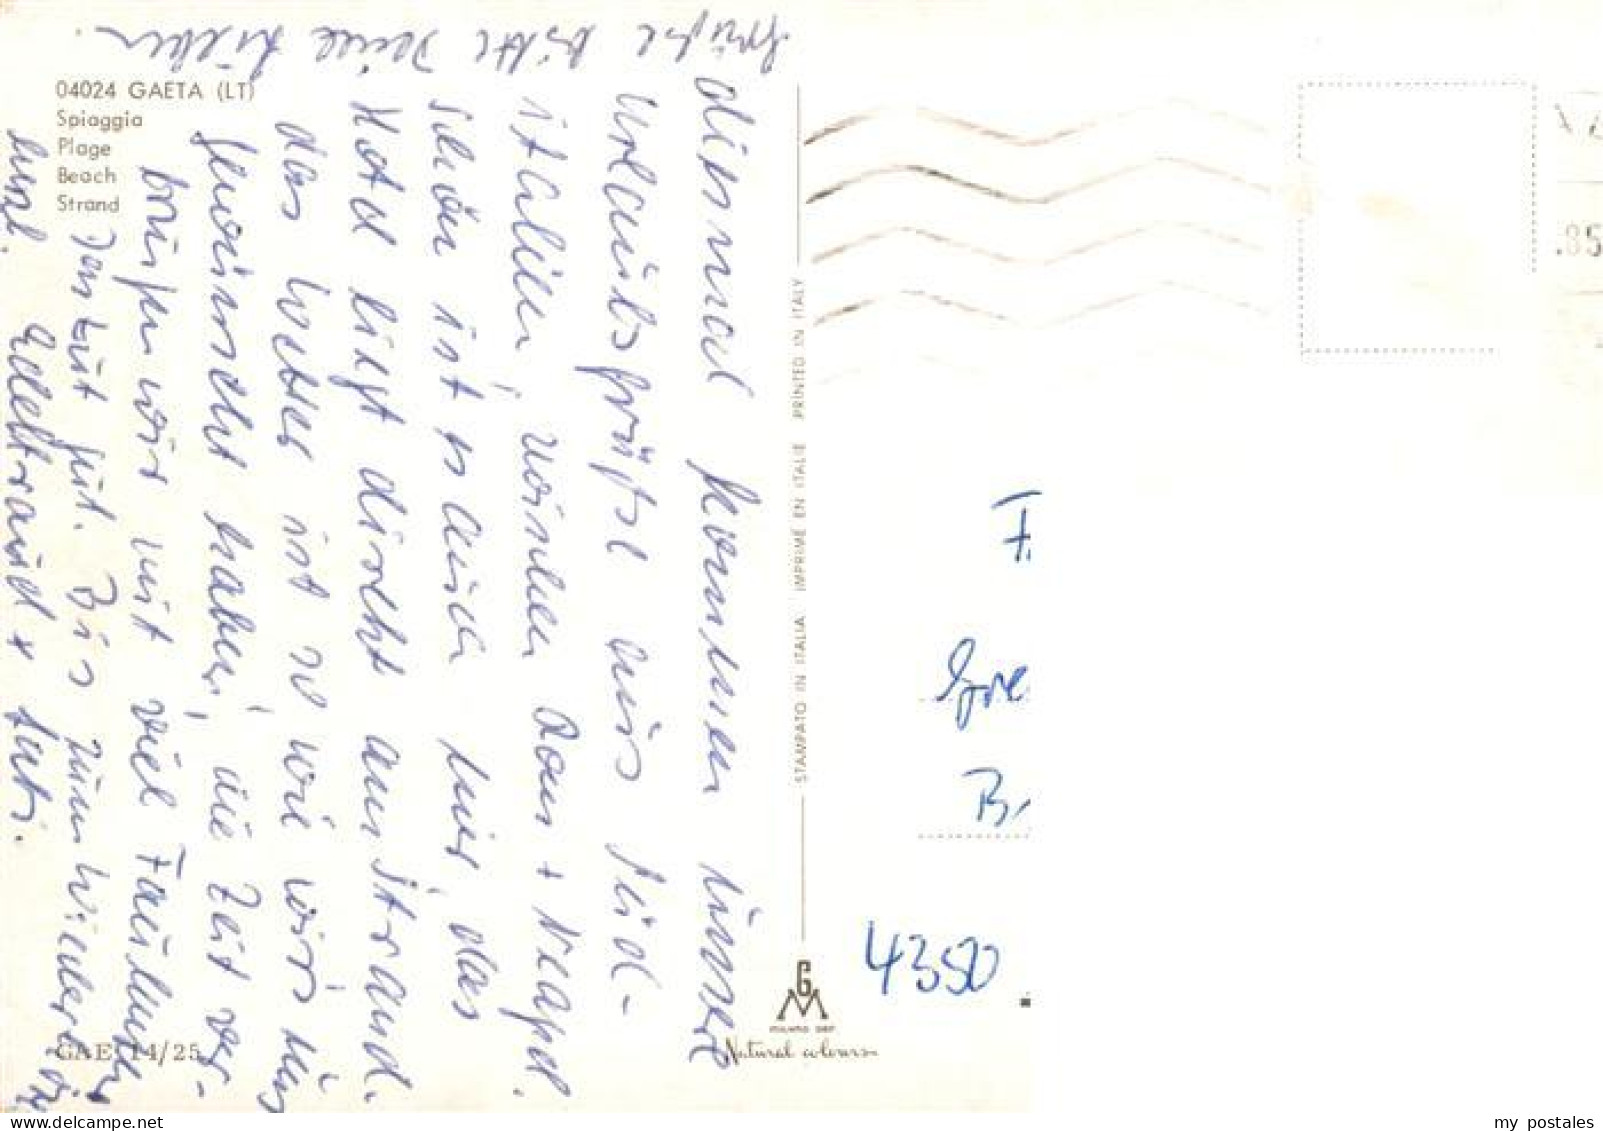 04024 GAETA (LT)
Spiaggia
Plage
Beach
Strand
diesmal kommen unsere
Urlaubsgrüße aus Süd-
italien, zwischen Rom + Neapel.
Schön ist es hier, das
Hotel liegt direkt am Strand.
das Wetter ist so wie wir's uns
gewünscht haben, die Zeit ver-
bringen wir mit viel
Das tut gut. Bis zum
Edeltraud +
Grüße bitte Deine Lieben.
STAMPATO IN ITALIA IMPRIMÉ EN ITALIE PRINTED IN ITALY
GM
MILANO DEP
Natural colours
GAE 14/25
.85
F.
Gre
B
4350
my postales